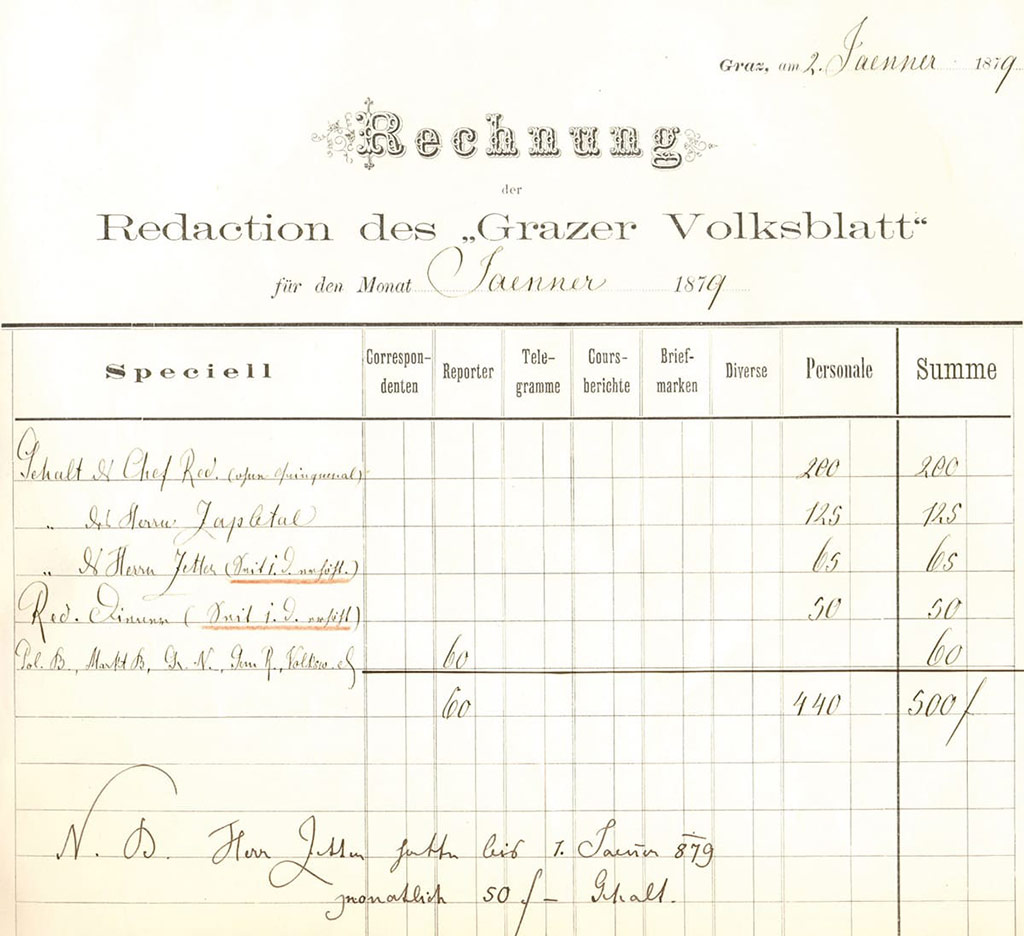 Graz, am 2. Jaenner 1879
Rechnung
der
Redaction des „Grazer Volksblatt“
für den Monat Jaenner 1879
Speciell Correspon-denten Reporter Tele-gramme Cours-berichte Brief-marken Diverse Personale Summe
Gehalt ds Chef Red. (ohne Quinquenal) 200 200
„ des Herrn Zapletal 125 125
„ ds Herrn Jetter (Seit i. d. erhöht.) 65 65
Red. Diener (Seit i. d. erhöht) 50 50
Pol. B., Markt B., Gr. N., Gem R., 60 60
60 440 500 f
N. B. Herr Jetter hatte bis 1. Jaener 879
monatlich 50 f – Gehalt.